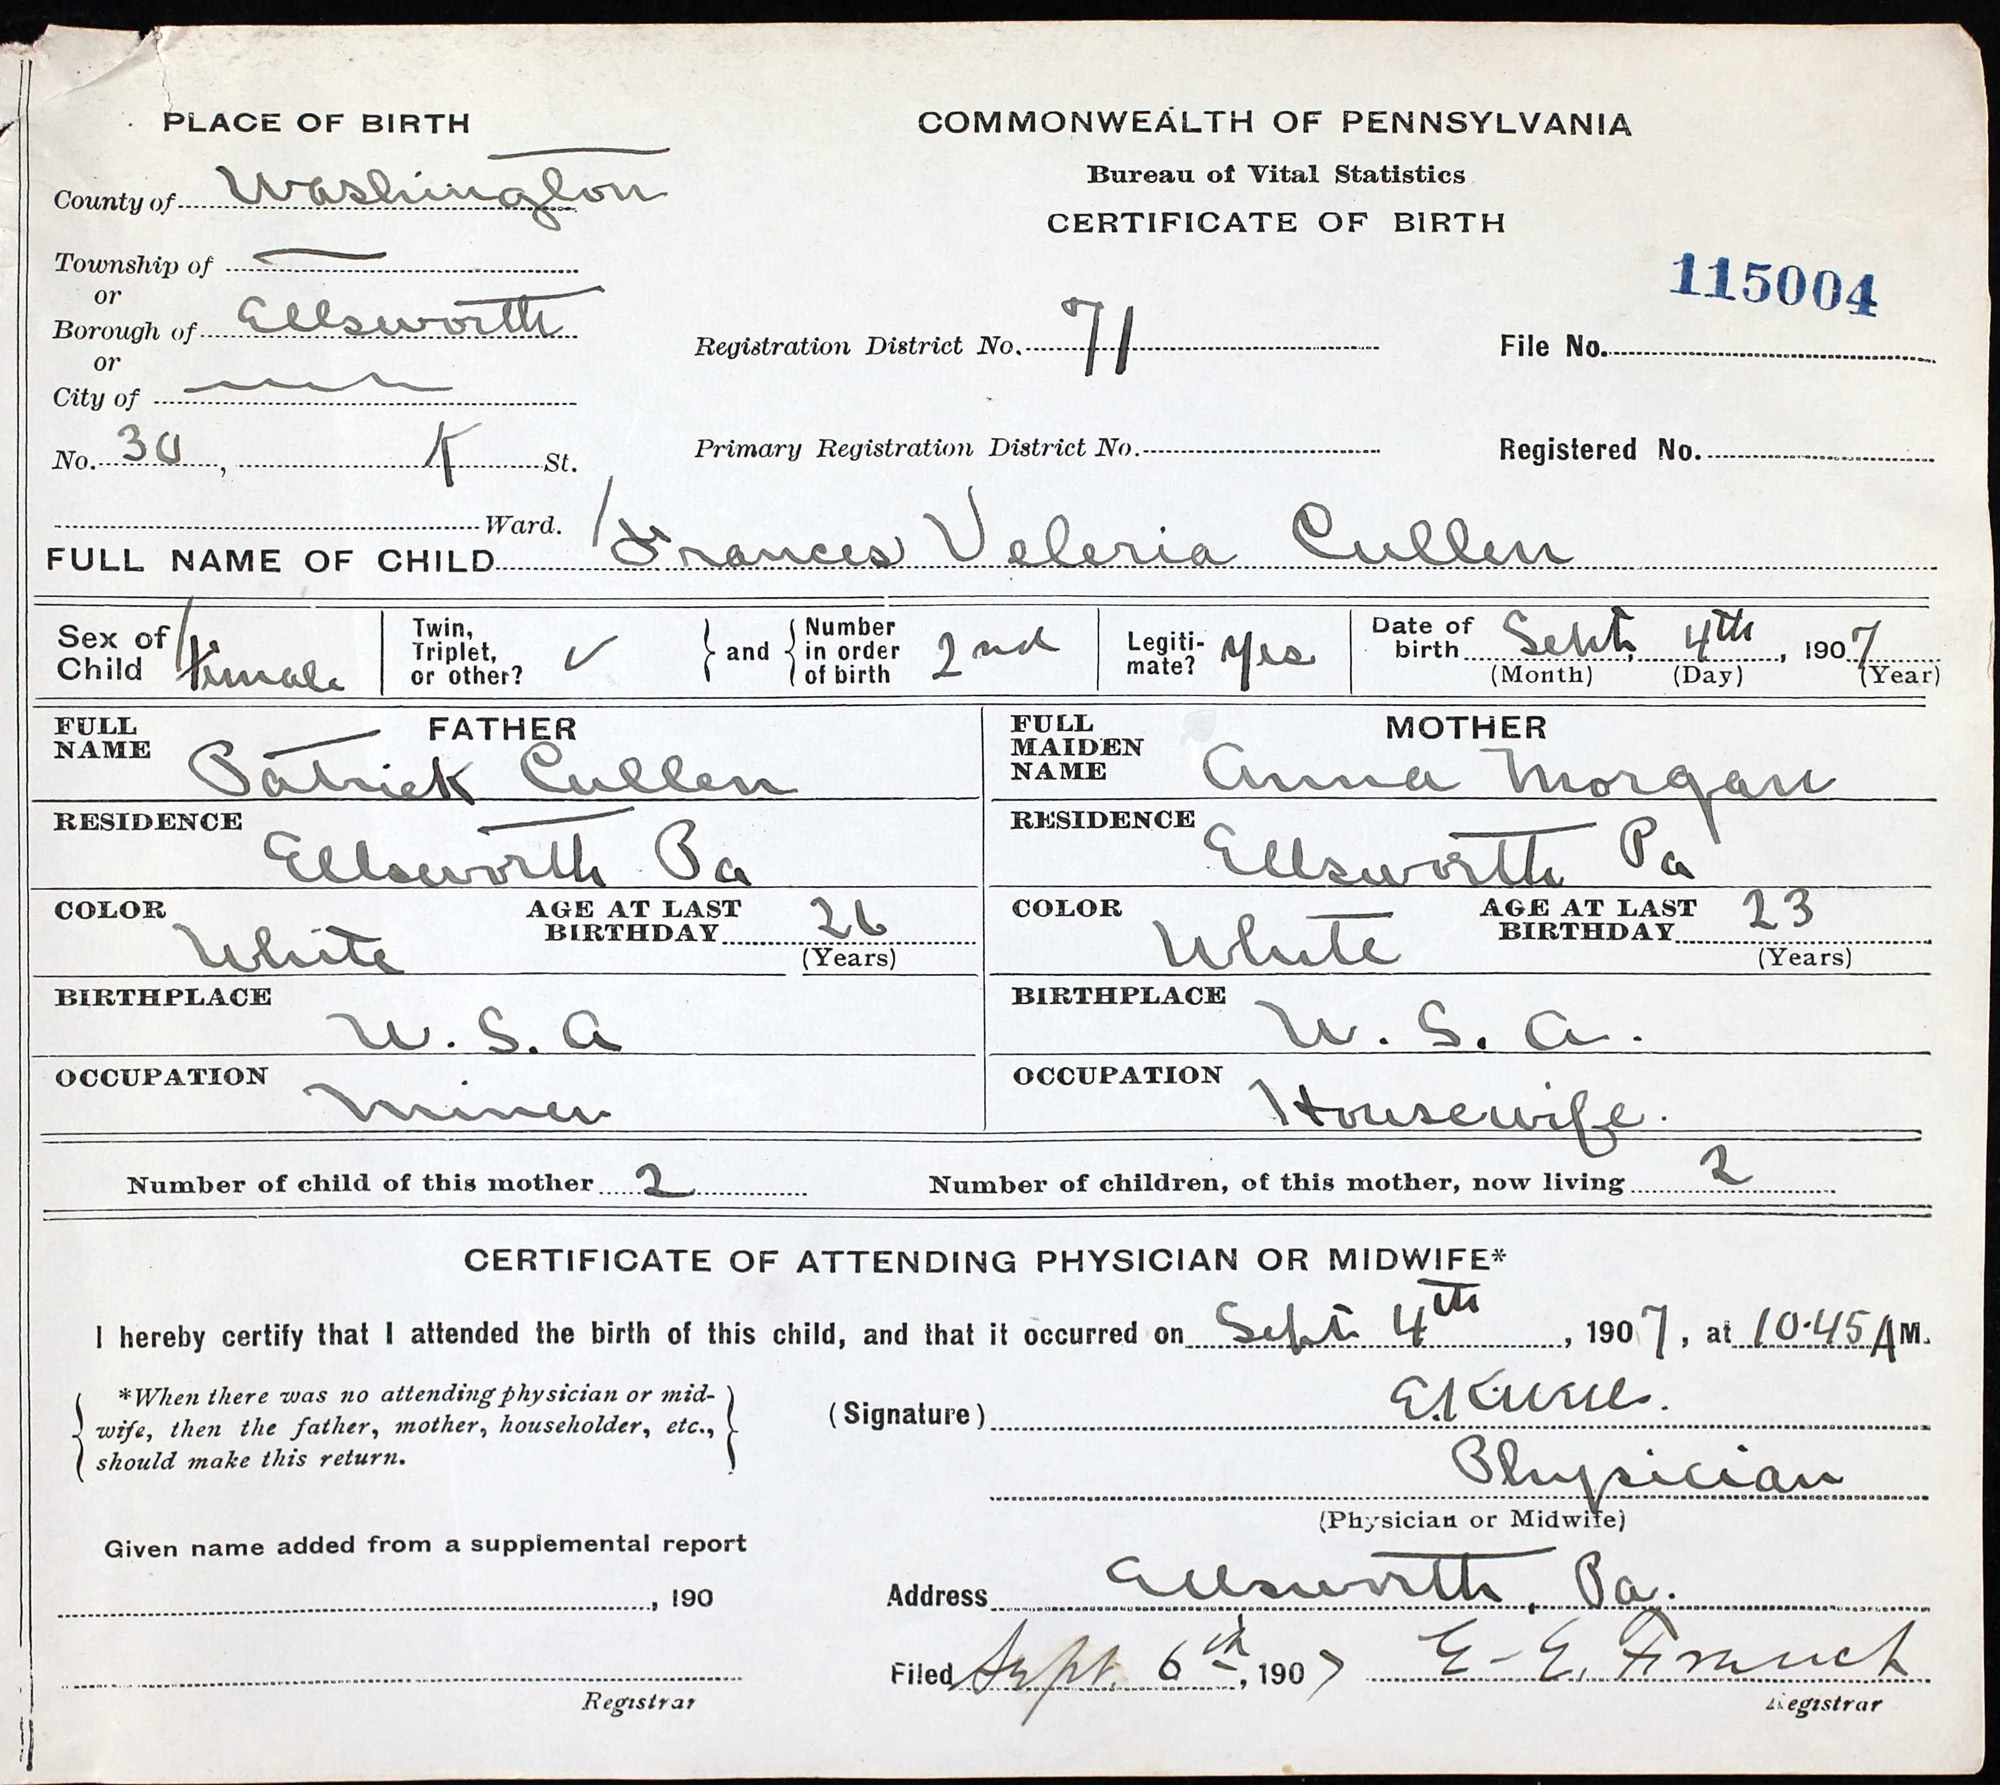 PLACE OF BIRTH
COMMONWEALTH OF PENNSYLVANIA
Bureau of Vital Statistics
CERTIFICATE OF BIRTH
County of Washington
Township of
or
Borough of Ellsworth
or
City of
No. 30, K St.
Ward.
115004
Registration District No. 71
File No.
Primary Registration District No.
Registered No.
FULL NAME OF CHILD Frances Veleria Cullen
Sex of Child Female
Twin, Triplet, or other? ✓
and
Number in order of birth 2nd
Legitimate? Yes
Date of birth Sept. 4th, 1907
(Month) (Day) (Year)
FATHER
FULL NAME Patrick Cullen
RESIDENCE Ellsworth Pa
COLOR White
AGE AT LAST BIRTHDAY 26
(Years)
BIRTHPLACE U.S.A
OCCUPATION Miner
MOTHER
FULL MAIDEN NAME Anna Morgan
RESIDENCE Ellsworth Pa
COLOR White
AGE AT LAST BIRTHDAY 23
(Years)
BIRTHPLACE U.S.A.
OCCUPATION Housewife.
Number of child of this mother 2
Number of children, of this mother, now living 2
CERTIFICATE OF ATTENDING PHYSICIAN OR MIDWIFE*
I hereby certify that I attended the birth of this child, and that it occurred on Sept. 4th, 1907, at 10.45 A M.
*When there was no attending physician or mid-
wife, then the father, mother, householder, etc.,
should make this return.
(Signature)
Physician
(Physician or Midwife)
Given name added from a supplemental report
, 190
Registrar
Address Ellsworth, Pa.
Filed Sept. 6th, 1907 E. E. French
Registrar